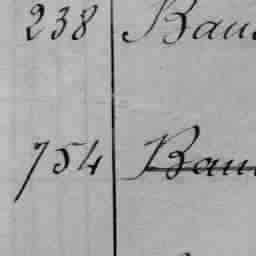 238 Bau
754 Bau